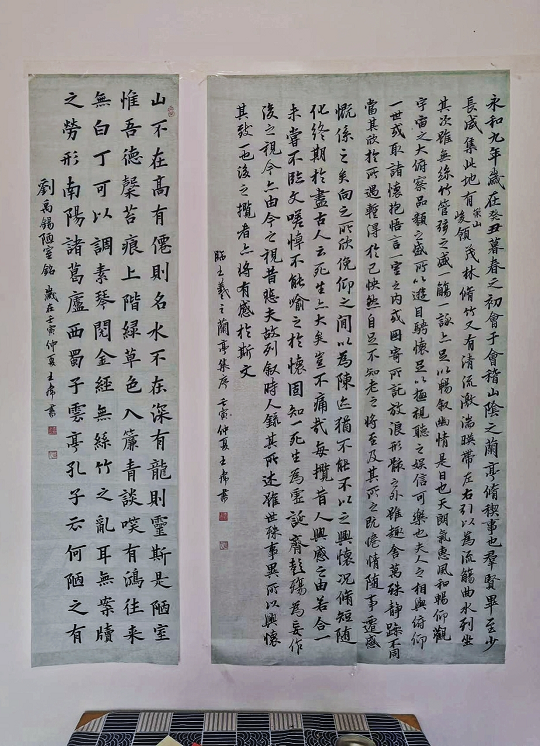 永和九年歲在癸丑暮春之初會于會稽山陰之蘭亭脩稧事也羣賢畢至少
長咸集此地有崇山峻領茂林脩竹又有清流激湍暎帶左右引以為流觴曲水列坐
其次雖無絲竹管弦之盛一觴一詠亦足以暢叙幽情是日也天朗氣惠風和暢仰觀
宇宙之大俯察品類之盛所以遊目騁懷足以極視聽之娛信可樂也夫人之相與俯仰
一世或取諸懷抱悟言一室之內或因寄所託放浪形骸之外雖趣舍萬殊靜躁不同
當其欣於所遇暫得於己怏然自足不知老之將至及其所之既惓情隨事遷感
慨係之矣向之所欣俛仰之間以為陳迹猶不能不以之興懷況脩短隨
化終期於盡古人云死生亦大矣豈不痛哉每攬昔人興感之由若合一
未嘗不臨文嗟悼不能喻之於懷固知一死生為虛誕齊彭殤為妄作
後之視今亦由今之視昔悲夫故列叙時人錄其所述雖世殊事異所以興懷
其致一也後之攬者亦將有感於斯文
臨王羲之蘭亭集序 壬寅仲夏王偉書
山不在高有僊則名水不在深有龍則靈斯是陋室
惟吾德馨苔痕上階綠草色入簾青談噗有鴻往來
無白丁可以調素琴閱金經無絲竹之亂耳無案牘
之勞形南陽諸葛廬西蜀子雲亭孔子云何陋之有
劉禹錫陋室銘 歲在壬寅仲夏王偉書